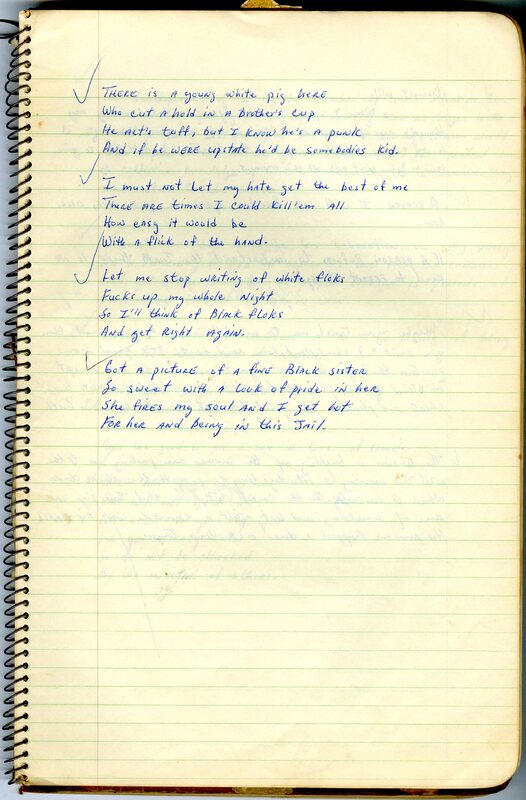 There is a young white pig here
Who cut a hold in a brother's cup.
He act's tuff, but I know he's a punk
And if he were upstate he'd be somebodies kid.
I must not let my hate get the best of me
There are times I could kill'em all
How easy it would be
With a flick of the hand.
Let me stop writing of white floks
Fucks up my whole night
So I'll think of Black floks
And get right again.
Got a picture of a fine Black sister
So sweet with a look of pride in her
She fires my soul and I get hot
For her and being in this jail.